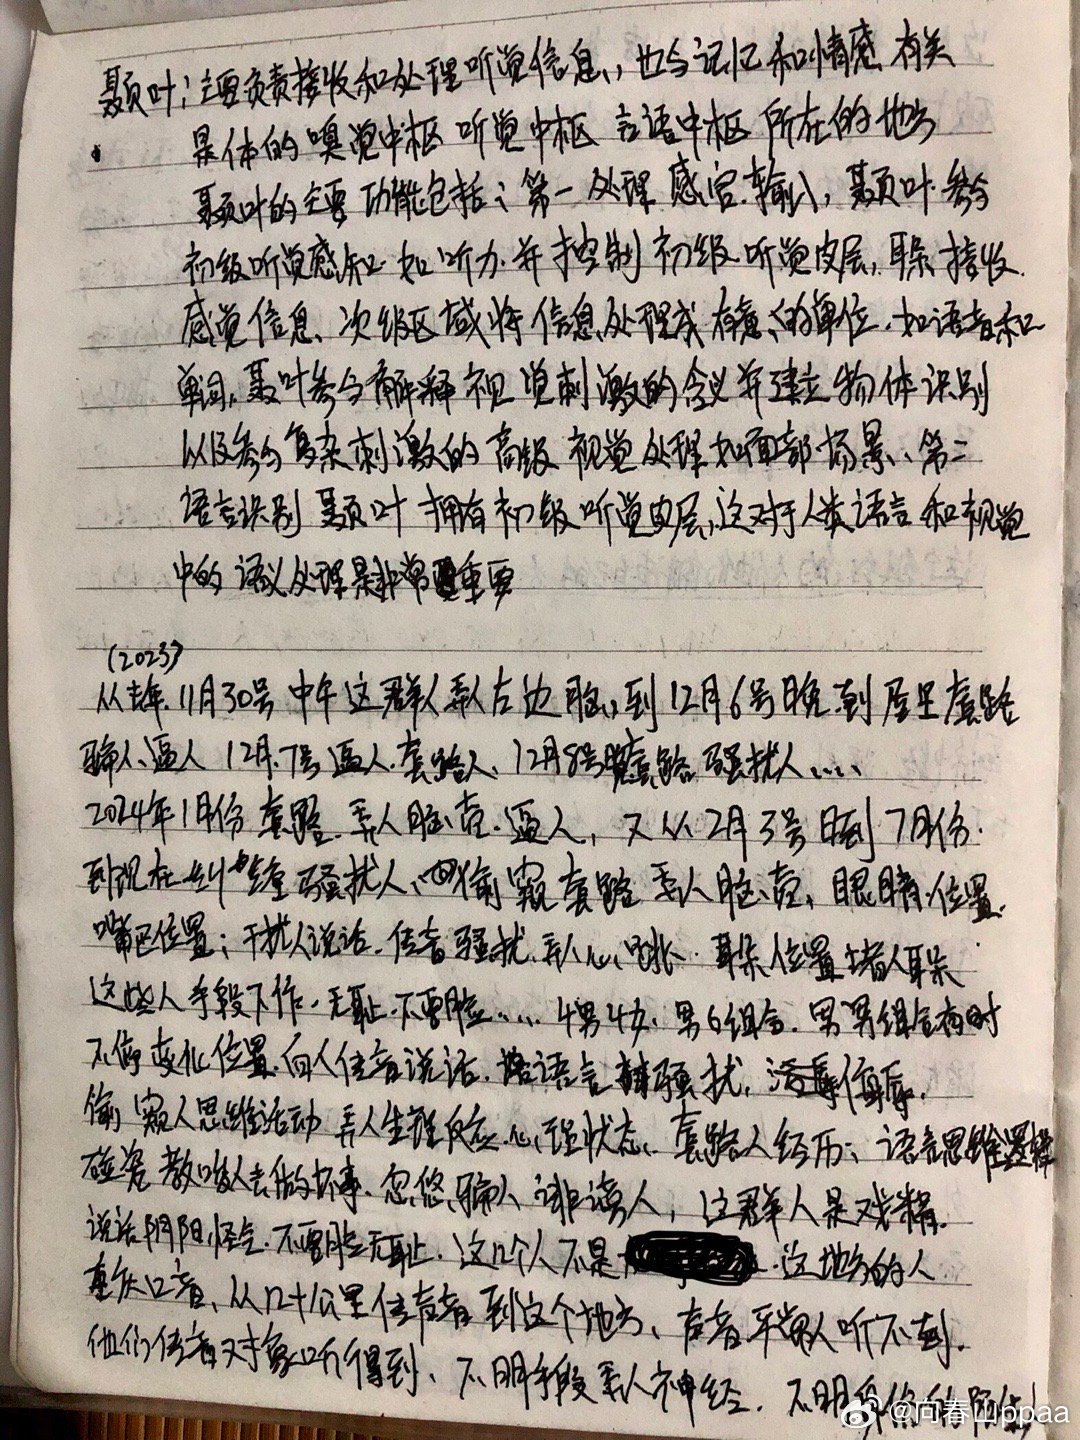 颞叶：主要负责接收和处理听觉信息，也与记忆和情感有关
是体的嗅觉中枢 听觉中枢 言语中枢 所在的地方
颞叶的主要功能包括：第一处理感官输入，颞叶参与
初级听觉感知 如听力 并控制初级听觉皮层，耳朵接收
感觉信息、次级区域将信息处理成有意义的单位，如语音和
单词，颞叶参与解释视觉刺激的含义并建立物体识别
以及参与复杂刺激的高级视觉处理如面部场景、第二
语言识别 颞叶拥有初级听觉皮层，这对于人类语言和视觉
中的语义处理是非常重要
(2023)
从去年11月30号中午这群人弄人左边脑，到12月6号晚到屋里套路
骗人、逼人 12月7号逼人套路人、12月8号套路骚扰人……
2024年1月份套路、弄人脑壳、逼人，又从2月3号到7月份
到现在纠缠骚扰人、偷窥套路弄人脑壳，眼睛位置
嘴巴位置；干扰人说话、传音骚扰、弄人心跳、耳朵位置堵人耳朵
这些人手段下作、无耻、不要脸……4男4女、男6组合、男男组合有时
不停变化位置、向人传音说话、语言骚扰，侮辱
偷窥人思维活动 弄人生理反应 心理状态、套路人经历；语言思维逻辑
碰瓷 教唆人去做坏事、忽悠、骗人 诽谤人，这群人是戏精
说话阴阳怪气、不要脸无耻、这几个人不是 这地方的人
重庆口音、从几十公里传声音到这个地方、声音平常人听不到
他们传音对象听得到、不明手段弄人神经、不明
@向春山ppaa